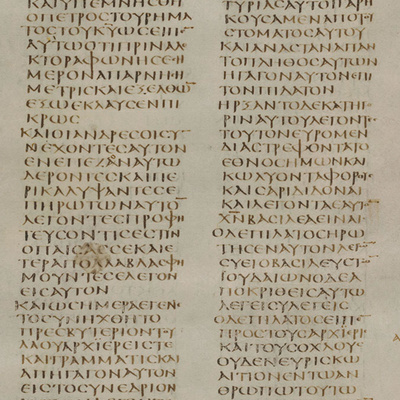 ΚΑΙΥΠΕΜΝΗϹΘΗ
ΟΠΕΤΡΟϹΤΟΥΡΗΜΑ
ΤΟϹΤΟΥΚΥΩϹΕΙΠΕ
ΑΥΤΩΟΤΙΠΡΙΝΑΛΕ
ΚΤΟΡΑΦΩΝΗϹΕϹΗ
ΜΕΡΟΝΑΠΑΡΝΗϹΗ
ΜΕΤΡΙϹΚΑΙΕΞΕΛΘΩ
ΕΞΩΕΚΛΑΥϹΕΝΠΙ
ΚΡΩϹ
ΚΑΙΟΙΑΝΔΡΕϹΟΙϹΥ
ΝΕΧΟΝΤΕϹΑΥΤΟΝ
ΕΝΕΠΕΖΟΝΑΥΤΩ
ΔΕΡΟΝΤΕϹΚΑΙΠΕ
ΡΙΚΑΛΥΨΑΝΤΕϹΕ
ΠΗΡΩΤΩΝΑΥΤΟ
ΛΕΓΟΝΤΕϹΠΡΟΦΗ
ΤΕΥϹΟΝΤΙϹΕϹΤΙΝ
ΟΠΑΙϹΑϹϹΕΚΑΙΕ
ΤΕΡΑΠΟΛΛΑΒΛΑϹΦΗ
ΜΟΥΝΤΕϹΕΛΕΓΟΝ
ΕΙϹΑΥΤΟΝ
ΚΑΙΩϹΗΜΕΡΑΕΓΕΝΕ
ΤΟϹΥΝΗΧΘΗΤΟ
ΠΡΕϹΒΥΤΕΡΙΟΝΤΟΥ
ΛΑΟΥΑΡΧΙΕΡΕΙϹΤΕ
ΚΑΙΓΡΑΜΜΑΤΙϹΚΑΙ
ΑΠΗΓΑΓΟΝΑΥΤΟΝ
ΕΙϹΤΟϹΥΝΕΔΡΙΟΝ
ΤΥΡΙΑϹΑΥΤΟΙΓΑΡΗ
ΚΟΥϹΑΜΕΝΑΠΟΤΟΥ
ϹΤΟΜΑΤΟϹΑΥΤΟΥ
ΚΑΙΑΝΑϹΤΑΝΑΠΑΝ
ΤΟΠΛΗΘΟϹΑΥΤΩΝ
ΗΓΑΓΟΝΑΥΤΟΝΕΠΙ
ΤΟΝΠΙΛΑΤΟΝ
ΗΡΞΑΝΤΟΔΕΚΑΤΗΓΟ
ΡΙΝΑΥΤΟΥΛΕΓΟΝΤΕϹ
ΤΟΥΤΟΝΕΥΡΟΜΕΝ
ΔΙΑϹΤΡΕΦΟΝΤΑΤΟ
ΕΘΝΟϹΗΜΩΝΚΑΙ
ΚΩΛΥΟΝΤΑΦΟΡΟΥϹ
ΚΑΙϹΑΡΙΔΙΔΟΝΑΙ
ΚΑΙΛΕΓΟΝΤΑΕΑΥΤΟΝ
ΧΝΒΑϹΙΛΕΑΕΙΝΑΙ
ΟΔΕΠΙΛΑΤΟϹΗΡΩ
ΤΗϹΕΝΑΥΤΟΝΛΕΓΩΝ
ϹΥΕΙΟΒΑϹΙΛΕΥϹΤΩΝ
ΙΟΥΔΑΙΩΝΟΔΕΑ
ΠΟΚΡΙΘΕΙϹΑΥΤΩ
ΛΕΓΕΙϹΥΛΕΓΕΙϹ
ΟΔΕΠΙΛΑΤΟϹΕΙΠΕ
ΠΡΟϹΤΟΥϹΑΡΧΙΕΡΕΙϹ
ΚΑΙΤΟΥϹΟΧΛΟΥϹ
ΟΥΔΕΝΕΥΡΙϹΚΩ
ΑΙΤΙΟΝΕΝΤΩΑΝ
ΘΡΩΠΩΤΟΥΤΩ